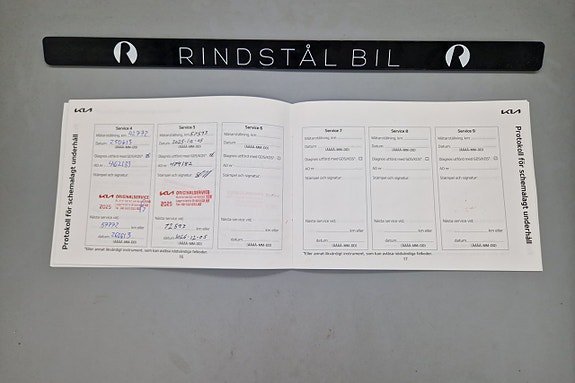 RINDSTÅL BIL
KIA
Protokoll för schemalagt underhåll
Service 4
Mätarställning, km 42772
Datum 250613
(ÅÅÅÅ-MM-DD)
Diagnos utförd med GDS/KDS*
AO nr 462123
Stämpel och signatur
KIA ORIGINALSERVICE
2025
Nästa service vid:
57772 km eller
datum 260613
(ÅÅÅÅ-MM-DD)
Service 5
Mätarställning, km 57597
Datum 2025-12-05
(ÅÅÅÅ-MM-DD)
Diagnos utförd med GDS/KDS*
AO nr 479182
Stämpel och signatur
KIA ORIGINALSERVICE
2025
Nästa service vid:
72597 km eller
datum 2026-12-05
(ÅÅÅÅ-MM-DD)
Service 6
Mätarställning, km
Datum
(ÅÅÅÅ-MM-DD)
Diagnos utförd med GDS/KDS*
AO nr
Stämpel och signatur
Nästa service vid:
km eller
datum
(ÅÅÅÅ-MM-DD)
*Eller annat likvärdigt instrument, som kan avläsa nödvändiga felkoder.
16
KIA
Service 7
Mätarställning, km
Datum
(ÅÅÅÅ-MM-DD)
Diagnos utförd med GDS/KDS*
AO nr
Stämpel och signatur
Nästa service vid:
km eller
datum
(ÅÅÅÅ-MM-DD)
Service 8
Mätarställning, km
Datum
(ÅÅÅÅ-MM-DD)
Diagnos utförd med GDS/KDS*
AO nr
Stämpel och signatur
Nästa service vid:
km eller
datum
(ÅÅÅÅ-MM-DD)
Service 9
Mätarställning, km
Datum
(ÅÅÅÅ-MM-DD)
Diagnos utförd med GDS/KDS*
AO nr
Stämpel och signatur
Nästa service vid:
km eller
datum
(ÅÅÅÅ-MM-DD)
*Eller annat likvärdigt instrument, som kan avläsa nödvändiga felkoder.
17
Protokoll för schemalagt underhåll